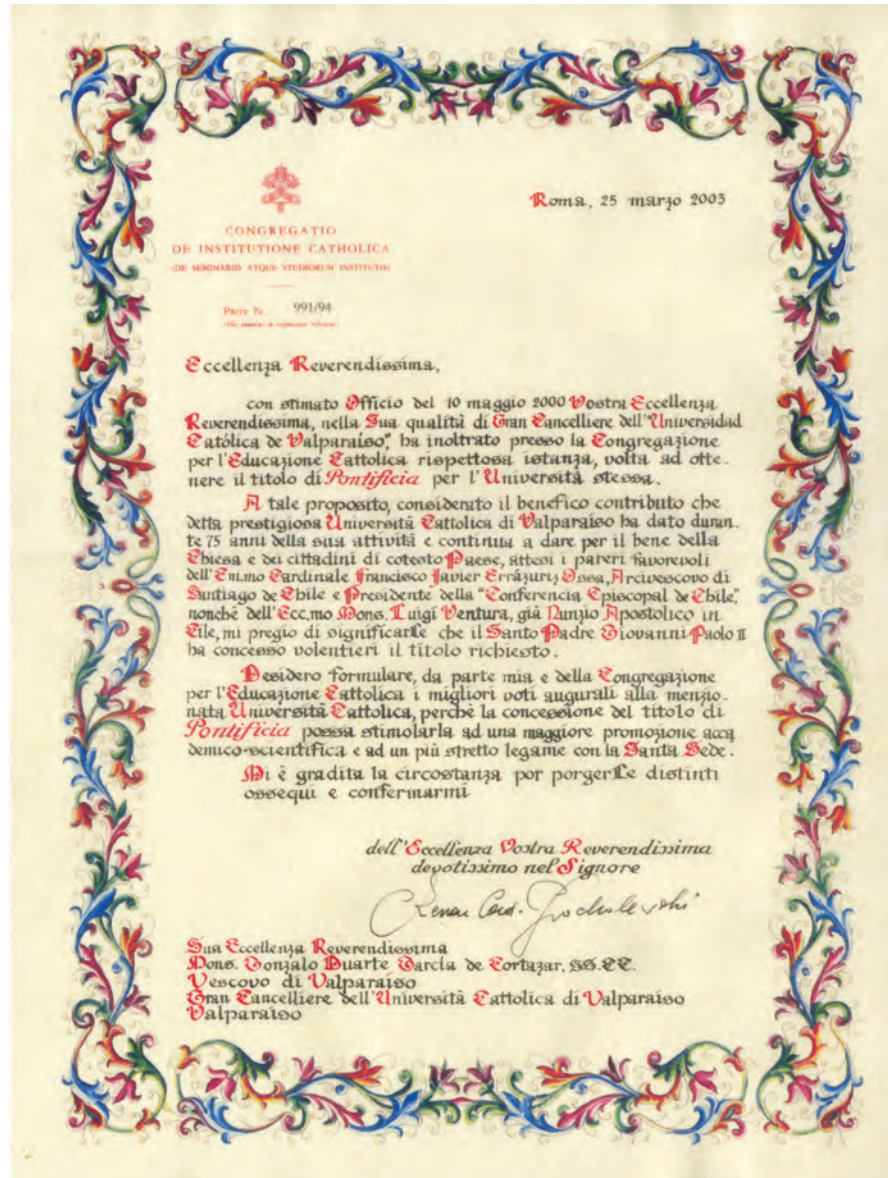 Roma, 25 marzo 2003
CONGREGATIO
DE INSTITUTIONE CATHOLICA
(DE SEMINARIIS ATQUE STUDIORUM INSTITUTIS)
PROT. N. 991/94
Eccellenza Reverendissima,
con stimato Officio del 10 maggio 2000 Vostra Eccellenza
Reverendissima, nella Sua qualità di Gran Cancelliere dell'"Universidad
Católica de Valparaíso", ha inoltrato presso la Congregazione
per l'Educazione Cattolica rispettosa istanza, volta ad otte-
nere il titolo di Pontificia per l'Università stessa.
A tale proposito, considerato il benefico contributo che
detta prestigiosa Università Cattolica di Valparaiso ha dato duran-
te 75 anni della sua attività e continua a dare per il bene della
Chiesa e dei cittadini di cotesto Paese, attesi i pareri favorevoli
dell'Em.mo Cardinale Francisco Javier Errázuriz Ossa, Arcivescovo di
Santiago de Chile e Presidente della "Conferencia Episcopal de Chile",
nonchè dell'Ecc.mo Mons. Luigi Ventura, già Nunzio Apostolico in
Cile, mi pregio di significarLe che il Santo Padre Giovanni Paolo II
ha concesso volentieri il titolo richiesto.
Desidero formulare, da parte mia e della Congregazione
per l'Educazione Cattolica i migliori voti augurali alla menzio-
nata Università Cattolica, perchè la concessione del titolo di
Pontificia possa stimolarla ad una maggiore promozione acca
demico-scientifica e ad un più stretto legame con la Santa Sede.
Mi è gradita la circostanza por porgerLe distinti
ossequi e confermarmi
dell'Eccellenza Vostra Reverendissima
devotissimo nel Signore
Zenon Card. Grocholewski
Sua Eccellenza Reverendissima
Mons. Gonzalo Duarte García de Cortazar, SS.CC.
Vescovo di Valparaiso
Gran Cancelliere dell'Università Cattolica di Valparaiso
Valparaiso